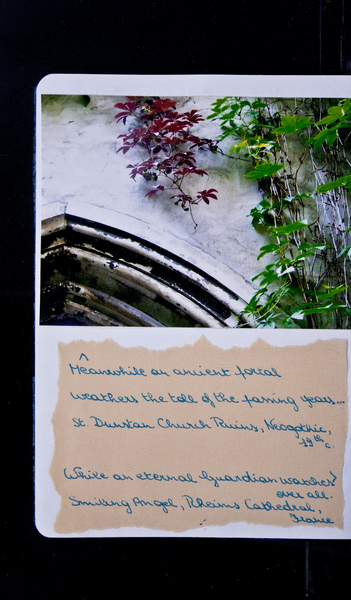 ^
Meanwhile an ancient portal
weathers the toll of the passing years...
St. Dunstan Church Ruins, Neogothic,
19th c.
While an eternal Guardian watches
over all.
Smiling Angel, Rheims Cathedral,
France